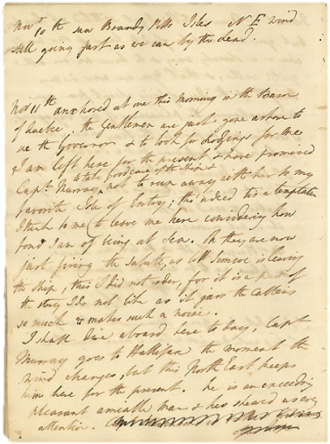 Novr. 10th saw Brandy Potts Isles N E wind
still going fast as we can by the lead.
Nov 11th anchored at one this morning in the Bason
of Quebec, the Gentlemen are just gone ashore to
see the Governor & to look for Lodgings for me
I am left here for the present & have promised
to take good care of the Ship &
Capt. Murray not to run away with her to my
favorite Isle of Entry; tho indeed tis a temptation
I think to me to leave me here considering how
fond I am of being at Sea. They are now
just firing the Salute, as Coll Simcoe is leaving
the Ship, this I did not order, for it is a part of
the story I do not like as it gave the Children
so much & makes such a noise.
I shall dine aboard here to day, Capt
Murray goes to Hallifax the moment the
wind changes, but this North East keeps
him here for the present. he is an exceeding
pleasant amiable man & has shewed us every
attention.